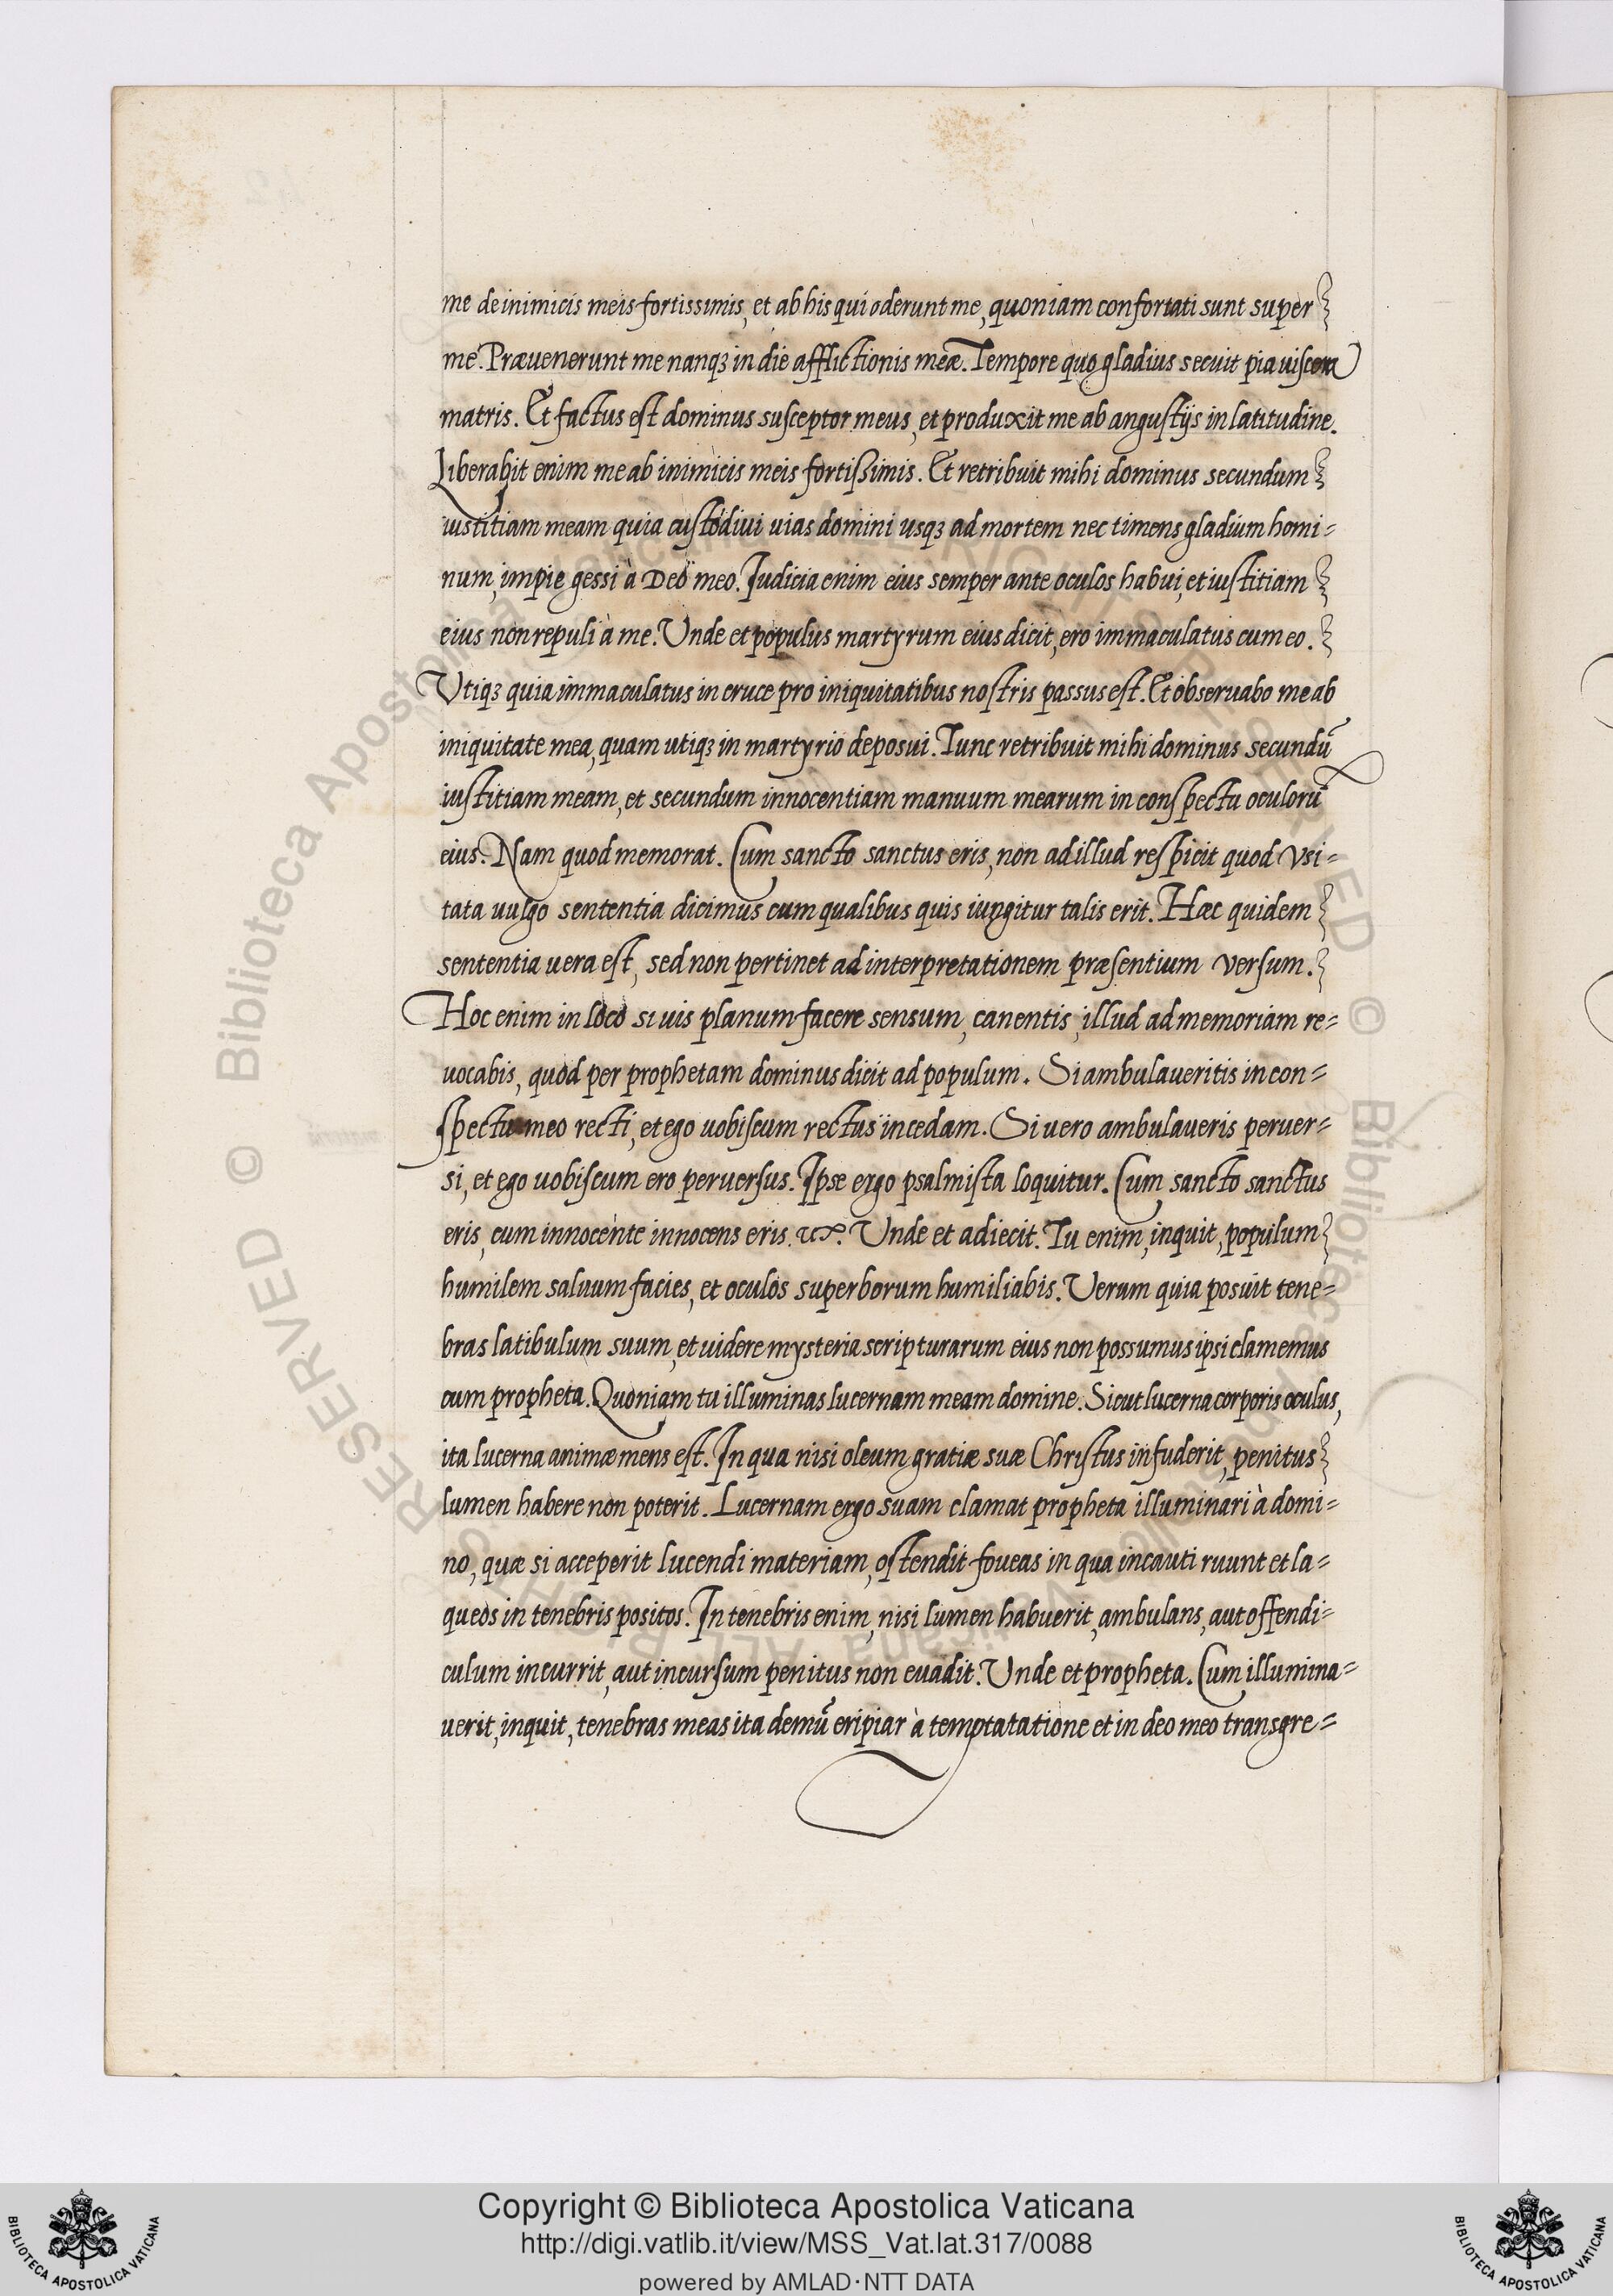 me de inimicis meis fortissimis, et ab his qui oderunt me, quoniam confortati sunt super
me. Præuenerunt me nanqꝫ in die afflictionis meæ. Tempore quo gladius secuit pia uiscera
matris. Et factus est dominus susceptor meus, et produxit me ab angustijs in latitudine.
Liberabit enim me ab inimicis meis fortißimis. Et retribuit mihi dominus secundum
iustitiam meam quia custodiui uias domini usqꝫ ad mortem nec timens gladium homi=
num, impie gessi à Deo meo. Iudicia enim eius semper ante oculos habui, et iustitiam
eius non repuli à me. Unde et populus martyrum eius dicit, ero immaculatus cum eo.
Vtiqꝫ quia immaculatus in cruce pro iniquitatibus nostris passus est. Et obseruabo me ab
iniquitate mea, quam utiqꝫ in martyrio deposui. Tunc retribuit mihi dominus secundũ
iustitiam meam, et secundum innocentiam manuum mearum in conspectu oculorũ
eius. Nam quod memorat. Cum sancto sanctus eris, non ad illud respicit quod vsi=
tata uulgo sententia dicimus cum qualibus quis iungitur talis erit. Hæc quidem
sententia uera est, sed non pertinet ad interpretationem præsentium versum.
Hoc enim in loco si uis planum facere sensum, canentis, illud ad memoriam re=
uocabis, quod per prophetam dominus dicit ad populum. Si ambulaueritis in con=
spectu meo recti, et ego uobiscum rectus incedam. Si uero ambulaueris peruer=
si, et ego uobiscum ero peruersus. Ipse ergo psalmista loquitur. Cum sancto sanctus
eris, cum innocente innocens eris. Unde et adiecit. Tu enim, inquit, populum
humilem saluum facies, et oculos superborum humiliabis. Verum quia posuit tene=
bras latibulum suum, et uidere mysteria scripturarum eius non possumus ipsi clamemus
cum propheta. Quoniam tu illuminas lucernam meam domine. Sicut lucerna corporis oculus,
ita lucerna animæ mens est. In qua nisi oleum gratiæ suæ Christus infuderit, penitus
lumen habere non poterit. Lucernam ergo suam clamat propheta illuminari à domi=
no, quæ si acceperit lucendi materiam, ostendit foueas in qua incauti ruunt et la=
queos in tenebris positos. In tenebris enim, nisi lumen habuerit, ambulans, aut offendi=
culum incurrit, aut incursum penitus non euadit. Unde et propheta. Cum illumina=
uerit, inquit, tenebras meas ita demũ eripiar à temptatatione et in deo meo transgre=
© Biblioteca Apostolica Vaticana ALL RIGHTS RESERVED
Copyright © Biblioteca Apostolica Vaticana
http://digi.vatlib.it/view/MSS_Vat.lat.317/0088
powered by AMLAD·NTT DATA
BIBLIOTECA APOSTOLICA VATICANA
BIBLIOTECA APOSTOLICA VATICANA